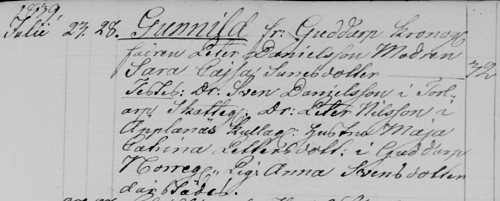 1839
Julii 23. 28. Gunnild fr: Guddarp Kronog:
fadren Peter Danielsson Modren
Sara Cajsa Sunesdotter 32
Testes: Dr: Sven Danielsson i Torb-
arp Skatteg: Dr: Peter Nilsson i
Applanäs Kullag: Hustru Maja
Cathrina Pettersdott: i Guddarp
Norreg: Pig: Anna Svensdotter
där städes.